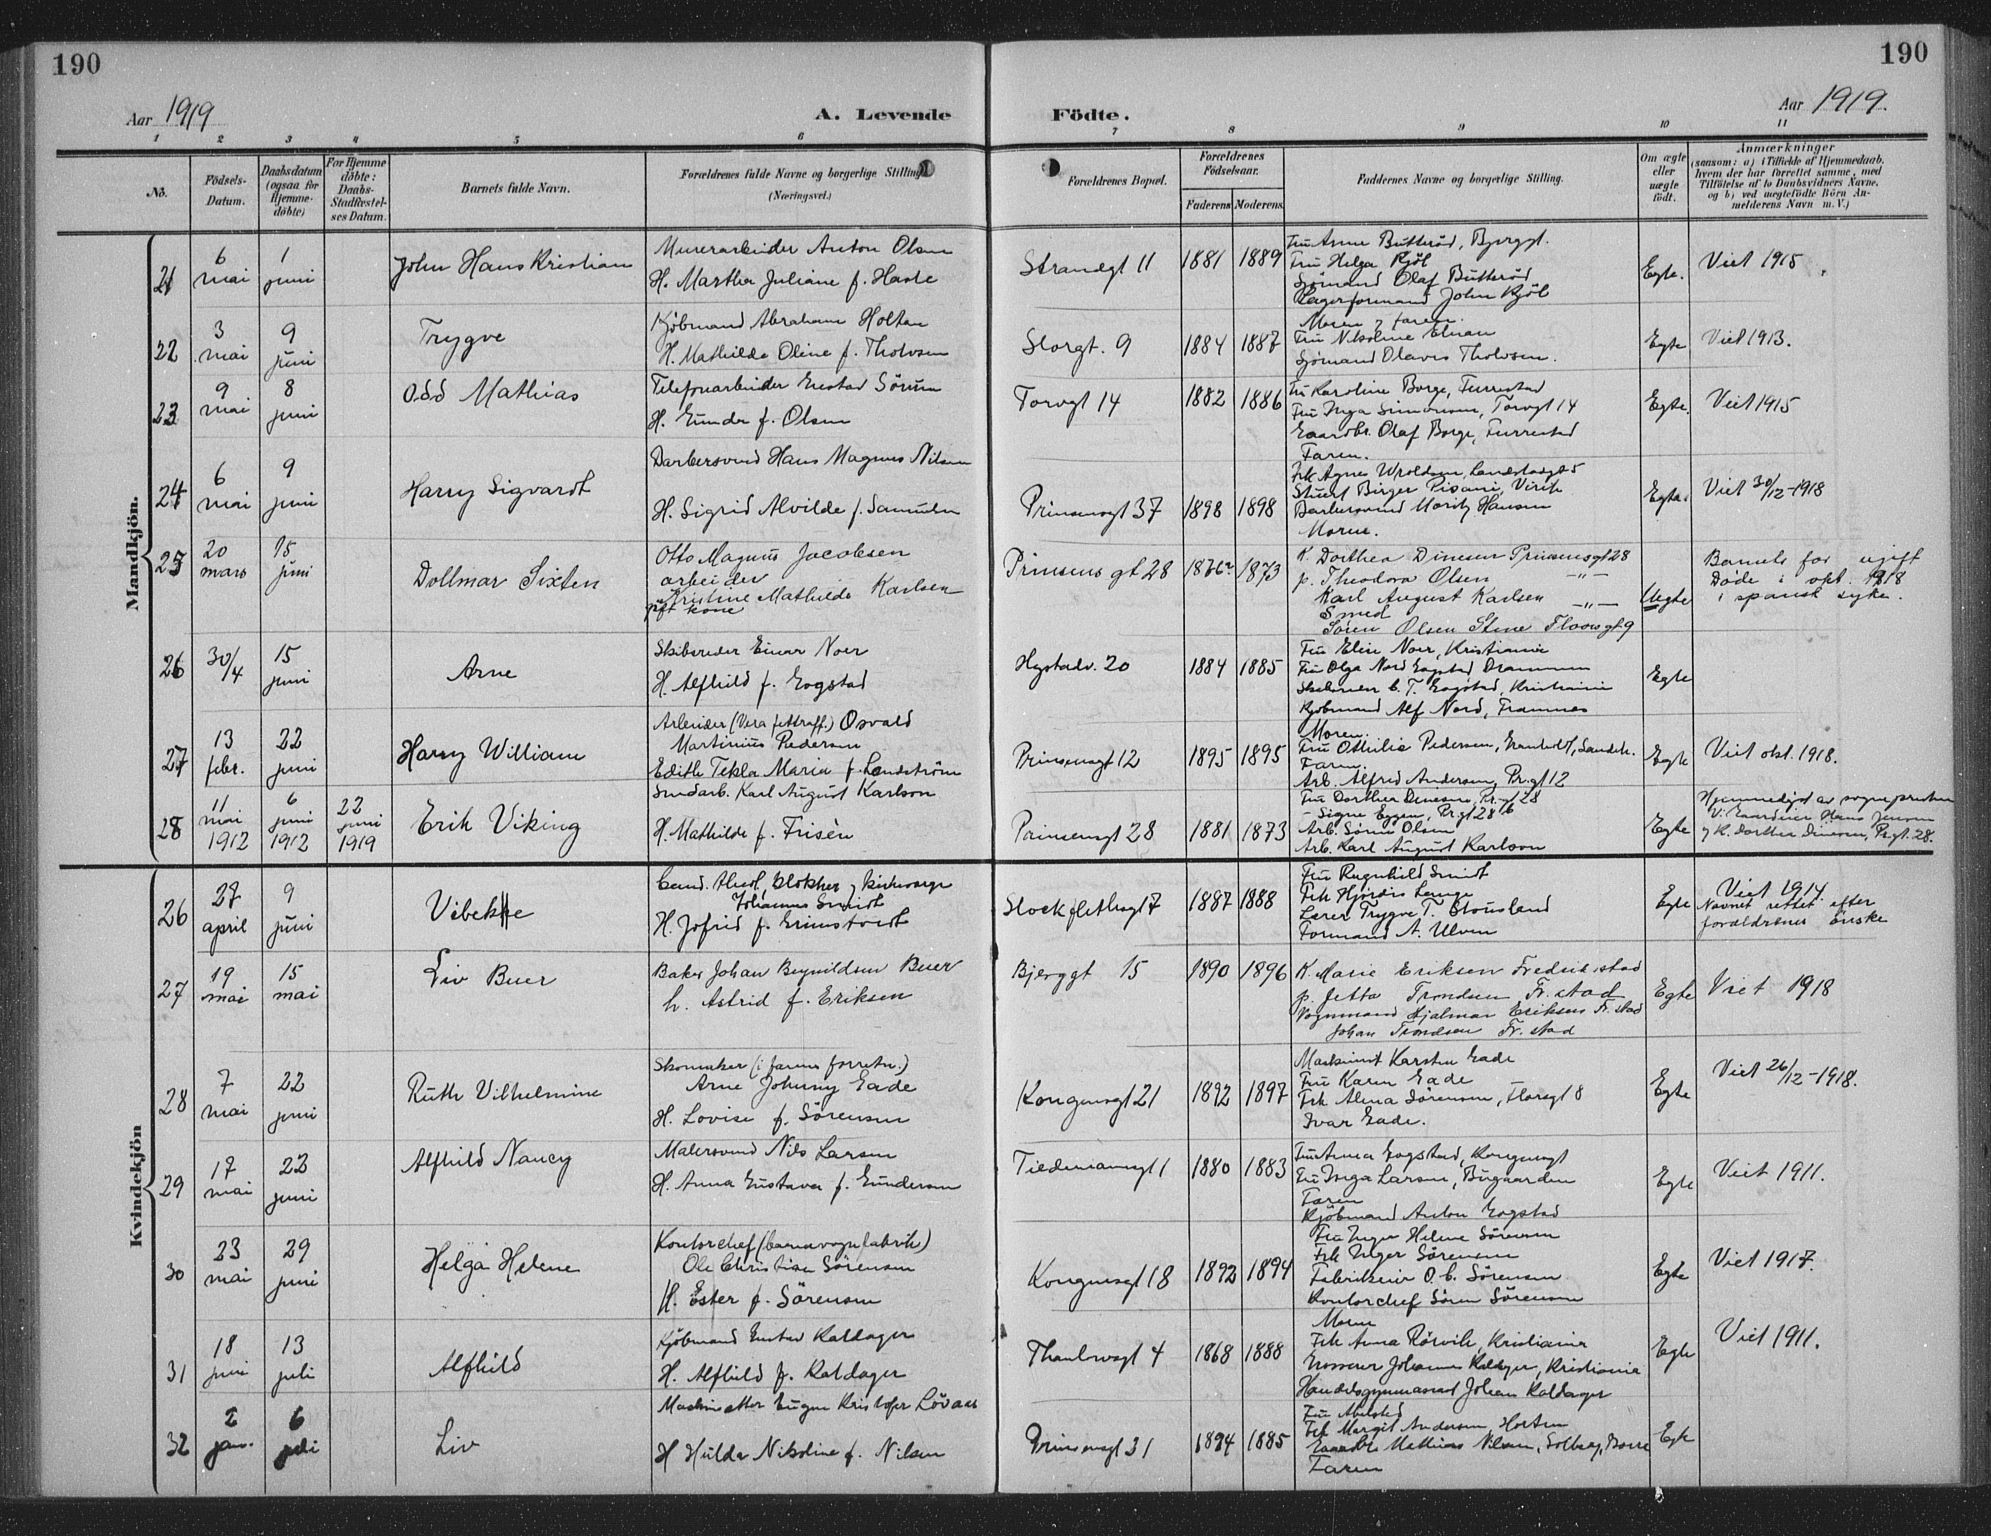 190
190
Aar 1919
A. Levende
Födte.
Aar 1919.
1 2 3 4 5 6 7 8 9 10 11
No. Födsels-Datum. Daabsdatum (ogsaa for Hjemme-döbte) For Hjemme döbte: Daabs-Stadfæstel-ses Datum. Barnets fulde Navn. Forældrenes fulde Navne og borgerlige Stilling (Næringsvei.) Forældrenes Bopæl. Forældrenes Födselsaar. Faderens Moderens Faddernes Navne og borgerlige Stilling. Om ægte eller uægte födt. Anmærkninger (saasom: a) i Tilfælde af Hjemmedaab, hvem der har forrettet samme, med Tilföielse af to Daabsvidners Navne, og b) ved uegtefödte Börn An-melderens Navn m. V.)
Mandkjön.
21 6 mai 1 juni John Hans Kristian
Murerarbeider Anton Olsen
H. Martha Juliane f. Hasle
Strandgt 11 1881 1889
Fru Anne Butteröd, Bjerggt.
Fru Helga Kjöl
Sjömand Olaf Butteröd
Lagerformand John Kjöl
Egte. Viet 1915
22 3 mai 9 juni Trygve
Kjöbmand Abraham Holtan
H. Mathilde Oline f. Tholvsen
Storgt. 9 1884 1887
Moren og faren.
Fru Nikoline
Sjömand Olaves Tholvsen.
Egte Viet 1913.
23 9 mai 8 juni Odd Mathias
Telefonarbeider Gustav Sörum
H. Gunda f. Olsen
Torvgt 14 1882 1886
Fru Karoline Borge, Furrestad
Fru Inga Simonsen, Torvgt 14
Gaardbr. Olaf Borge, Furrestad
Faren.
Egte. Viet 1915
24 6 mai 9 juni Harry Sigvardt
Barbersvend Hans Magnus Nilsen
H. Sigrid Alvilde f. Samuelsen
Prinsensgt 37 1898 1898
Frk Agnes Wroldsen, Landstadgt 5
Stuert Birger Pisani, Virik
Barbersvend Moritz Hansen
Moren.
Egte. Viet 30/12-1918
25 20 mars 15 juni Dollmar Sixten
Otto Magnus Jacobsen
arbeider
Kristine Mathilde Karlsen
gift kone
Prinsens gt 28 1876? 1873
K. Dorthea Dinesen Prinsensgt 28
p. Theodora Olsen —"—
Karl August Karlsen —"—
Smed
Sören Olsen Stine Floors gt 9
Uegte
Barnets far ugift
Døde i okt. 1918
i spansk syke.
26 30/4 15 juni Arne
Skibsreder Einar Noer
H. Alfhild f. Gogstad
Hystadv. 20 1884 1885
Fru Elin Noer, Kristiania
Fru Olga Nord Gogstad Drammen
Skibsreder C. T. Gogstad, Kristiania
Kjöbmand Alf Nord, Framnes
Egte
27 13 febr. 22 juni Harry William
Arbeider (Vera fettraff.) Osvald
Martinius Pedersen
Edith Tekla Maria f. Lendström
Prinsensgt 12 1895 1895
Moren.
Fru Othilie Pedersen, Sandeh.
Faren.
Arb. Alfred Andersen, Pr.gt 12
Egte Viet okt. 1918.
28 11 mai 1912 6 juni 1912 22 juni 1919 Erik Viking
Smedarb. Karl August Karlson
H. Mathilde f. Frisèn
Prinsensgt 28 1881 1873
Fru Dorthea Dinesen, Pr.gt 28
- Signe Pr.gt 28 b
Arb. Sören Olsen
Arb. Karl August Karlson
Egte
Hjemmedöpt av sognepresten
V: Hans Jensen
og K. Dorthea Dinesen, Pr.gt. 28.
Kvindekjön
26 27 april 9 juni Vibekke
Cand. theol, klokker og kirkeverge
Johannes Smidt
H. Jofrid f. Grimstvedt
Stockflethsgt 7 1887 1888
Fru Ragnhild Smidt
Frk Hjördis Lange
Lærer Trygve T. Stousland
Formand A. Ulven
Egte
Viet 1914
Navnet rettet efter
forældrenes önske
27 19 mai 15 mai Liv Buer
Baker Johan Buer
h. Astrid f. Eriksen
Bjerggt 15 1890 1896
K. Marie Eriksen Fredrikstad
p. Jetta Trondsen Fr. stad
Vognmand Hjalmar Eriksen Fr. stad
Johan Trondsen Fr. stad
Egte Viet 1918
28 7 mai 22 juni Ruth Vilhelmine
Skomaker (i farens forretn.)
Arne Johnny Gade
H. Lovise f. Sörensen
Kongensgt 21 1892 1897
Maskinist Karsten Gade
Fru Karen Gade
Frk Alma Sörensen, Floorsgt 8
Ivar Gade.
Egte Viet 26/12-1918.
29 17 mai 22 juni Alfhild Nancy
Malersvend Nils Larsen
H. Anna Gustava f. Gundersen
Tidemansgt 1 1880 1883
Fru Anna Gogstad, Kongensgt
Fru Inga Larsen, Bugaarden
Faren
Kjöbmand Anton Gogstad
Egte Viet 1911.
30 23 mai 29 juni Helga Helene
Kontorchef (barnevognfabrik)
Ole Christian Sörensen
H. Ester f. Sörensen
Kongensgt 18 1892 1894
Fru Inger Helene Sörensen
Frk Inger Sörensen
Fabrikeier O. C. Sörensen
Kontorchef Sören Sörensen
Egte Viet 1917.
31 18 juni 13 juli Alfhild
Kjöbmand Gustav Kaldager
H. Alfhild f. Kaldager
Thaulowsgt 4 1868 1888
Moren
Frk Anna Rörvik, Kristiania
Grosserer Johannes Kaldager, Kristiania
Handelsgymnasiast Johan Kaldager
Egte Viet 1911.
32 2 jan. 6 juli Liv
Maskinsetter Eugen Kristofer Lövaas
H Hulda Nikoline f. Nilsen
Prinsensgt 31 1894 1885
Fru Abelsted
Frk Margit Andersen, Horten
Gaardbr. Mathias Nilsen, Solberg, Borre
Faren
Egte